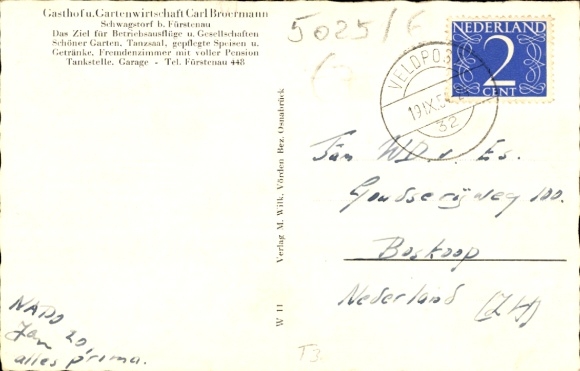 Gasthof u. Gartenwirtschaft Carl Broermann
Schwagstorf b. Fürstenau
Das Ziel für Betriebsausflüge u. Gesellschaften
Schöner Garten, Tanzsaal, gepflegte Speisen u.
Getränke. Fremdenzimmer mit voller Pension
Tankstelle, Garage - Tel. Fürstenau 448
5025/6
NEDERLAND
2
CENT
VELDPOST
19 IX 5
32
Fam W.D. v. Es.
Goudserijweg 100.
Boskoop
Nederland (ZH)
W 11 Verlag M. Wilk, Vörden Bez. Osnabrück
20,
alles prima.
T3